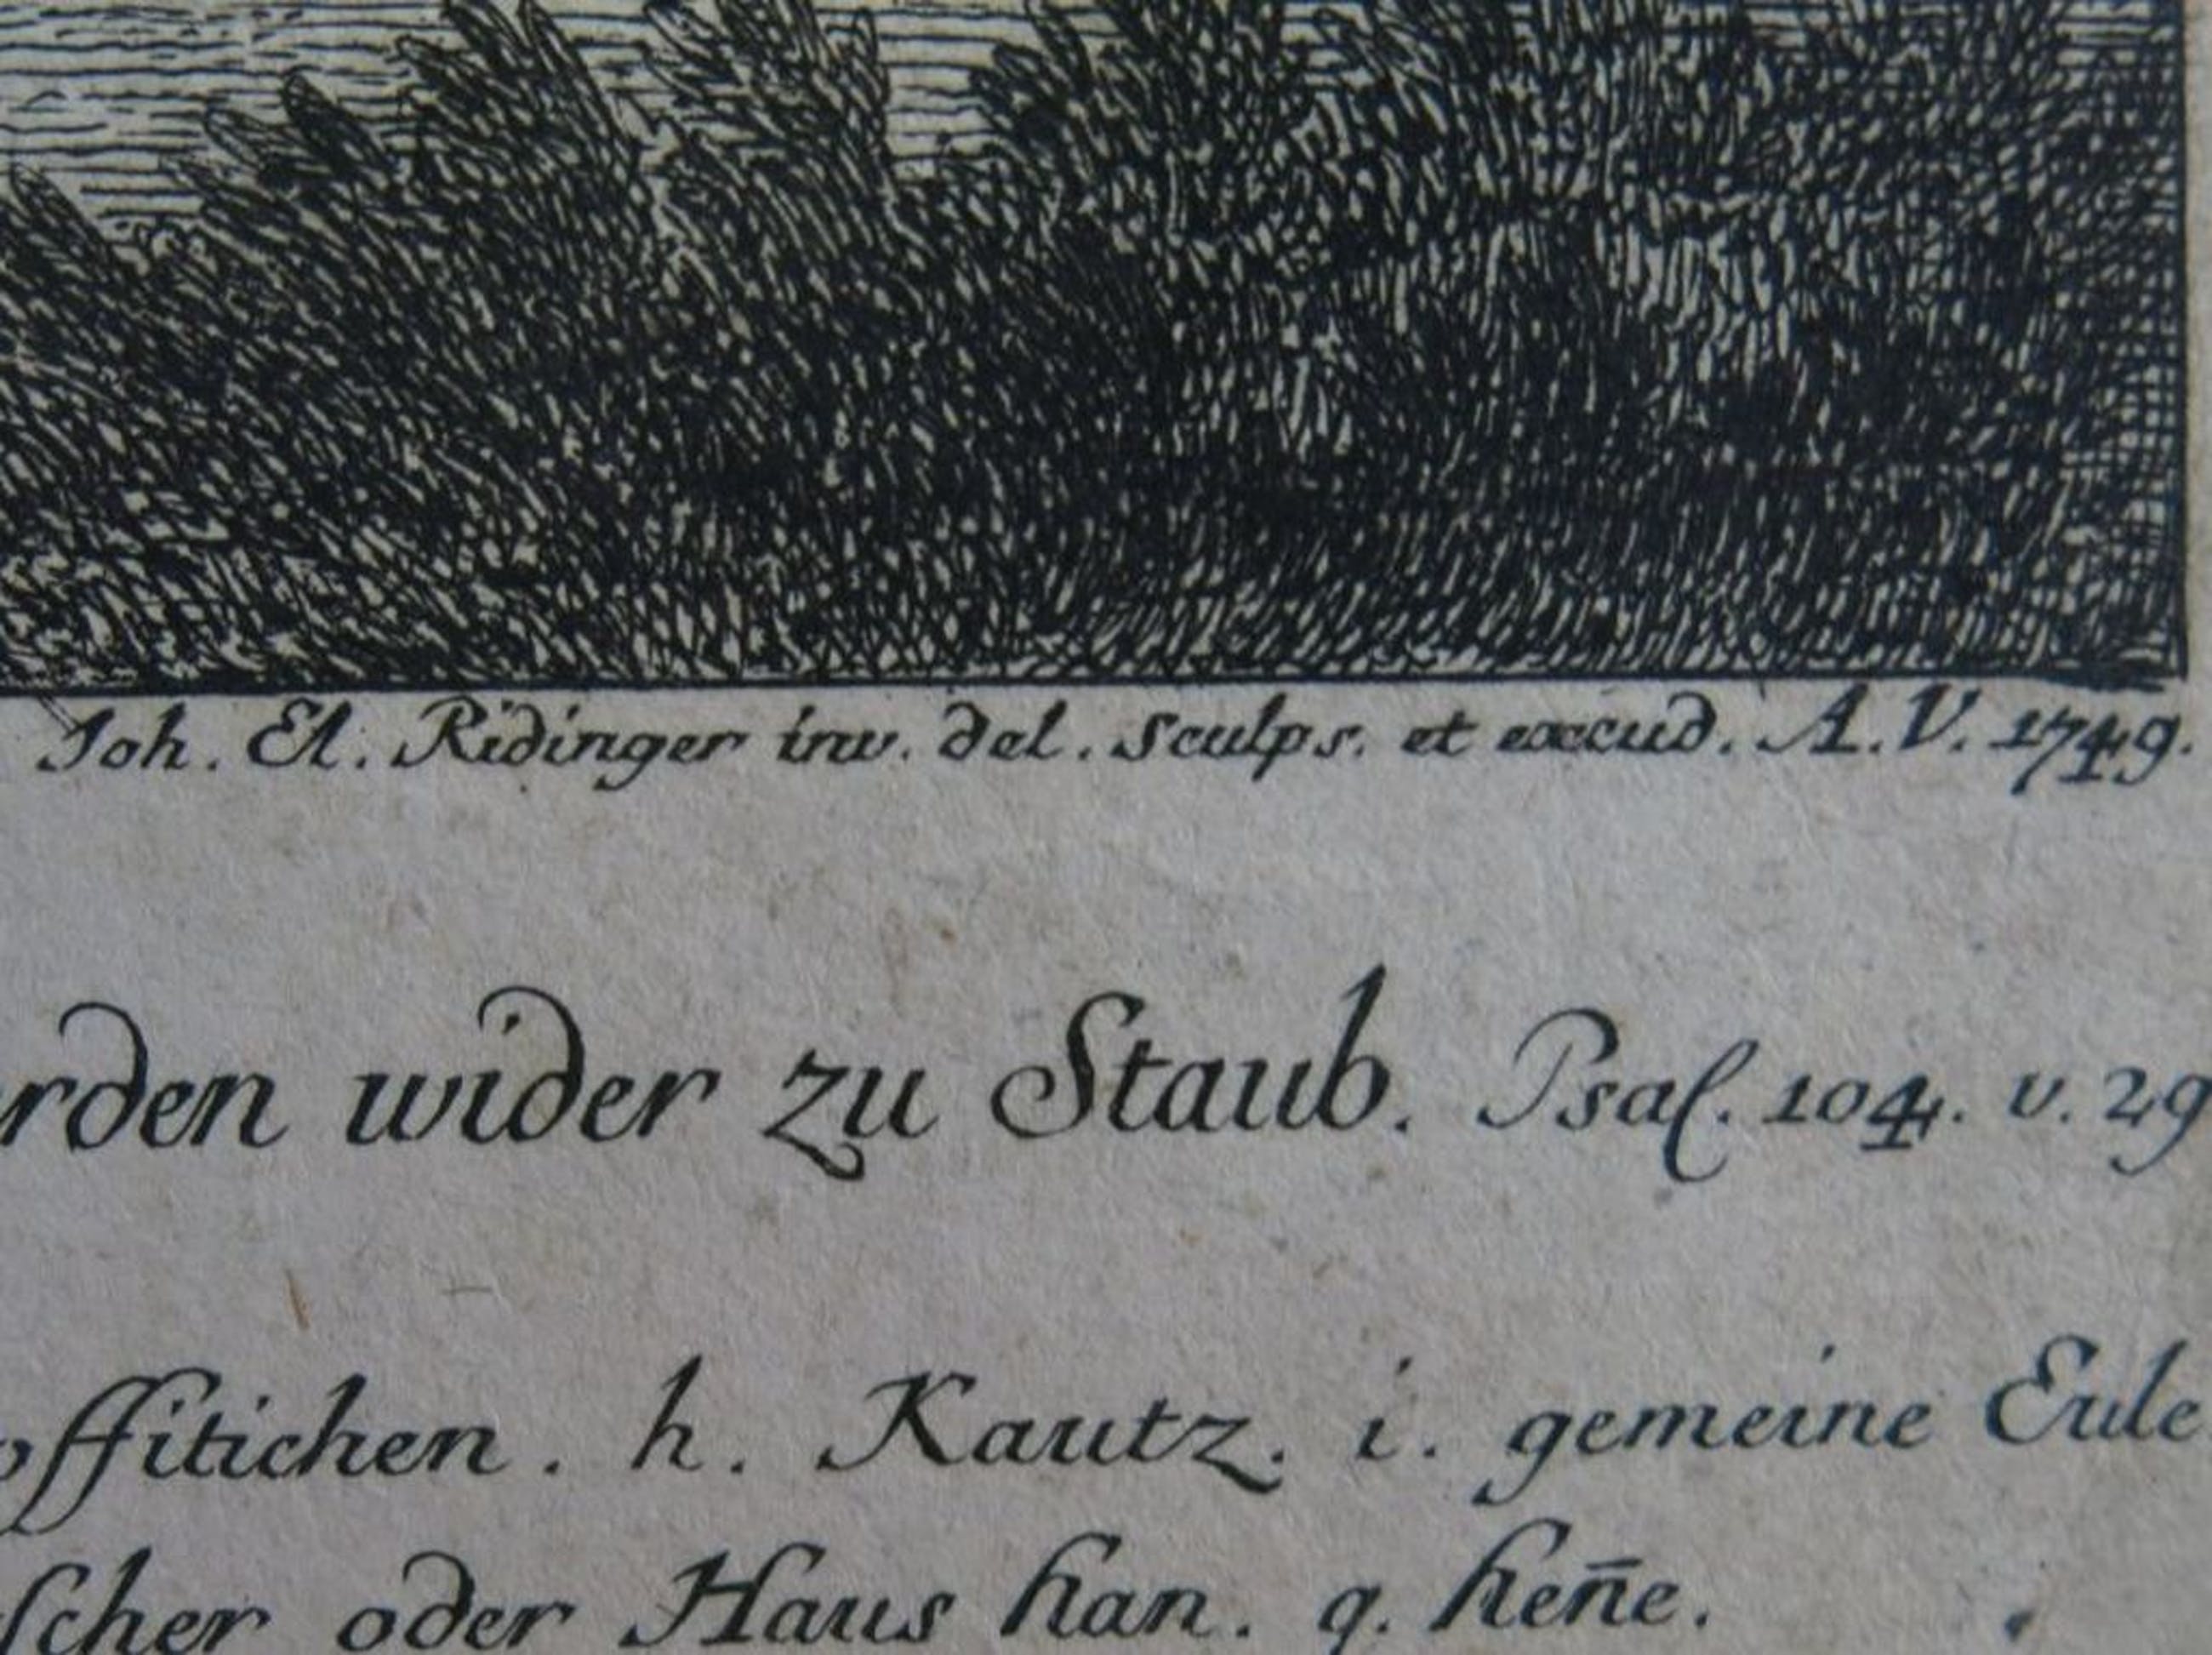 Joh. El. Ridinger inv. del. sculps. et excud. A. V. 1749.
rden wider zu Staub. Psal. 104. v. 29
offitichen. h. Kautz. i. gemeine Eule
scher oder Haus han. q. heñe.